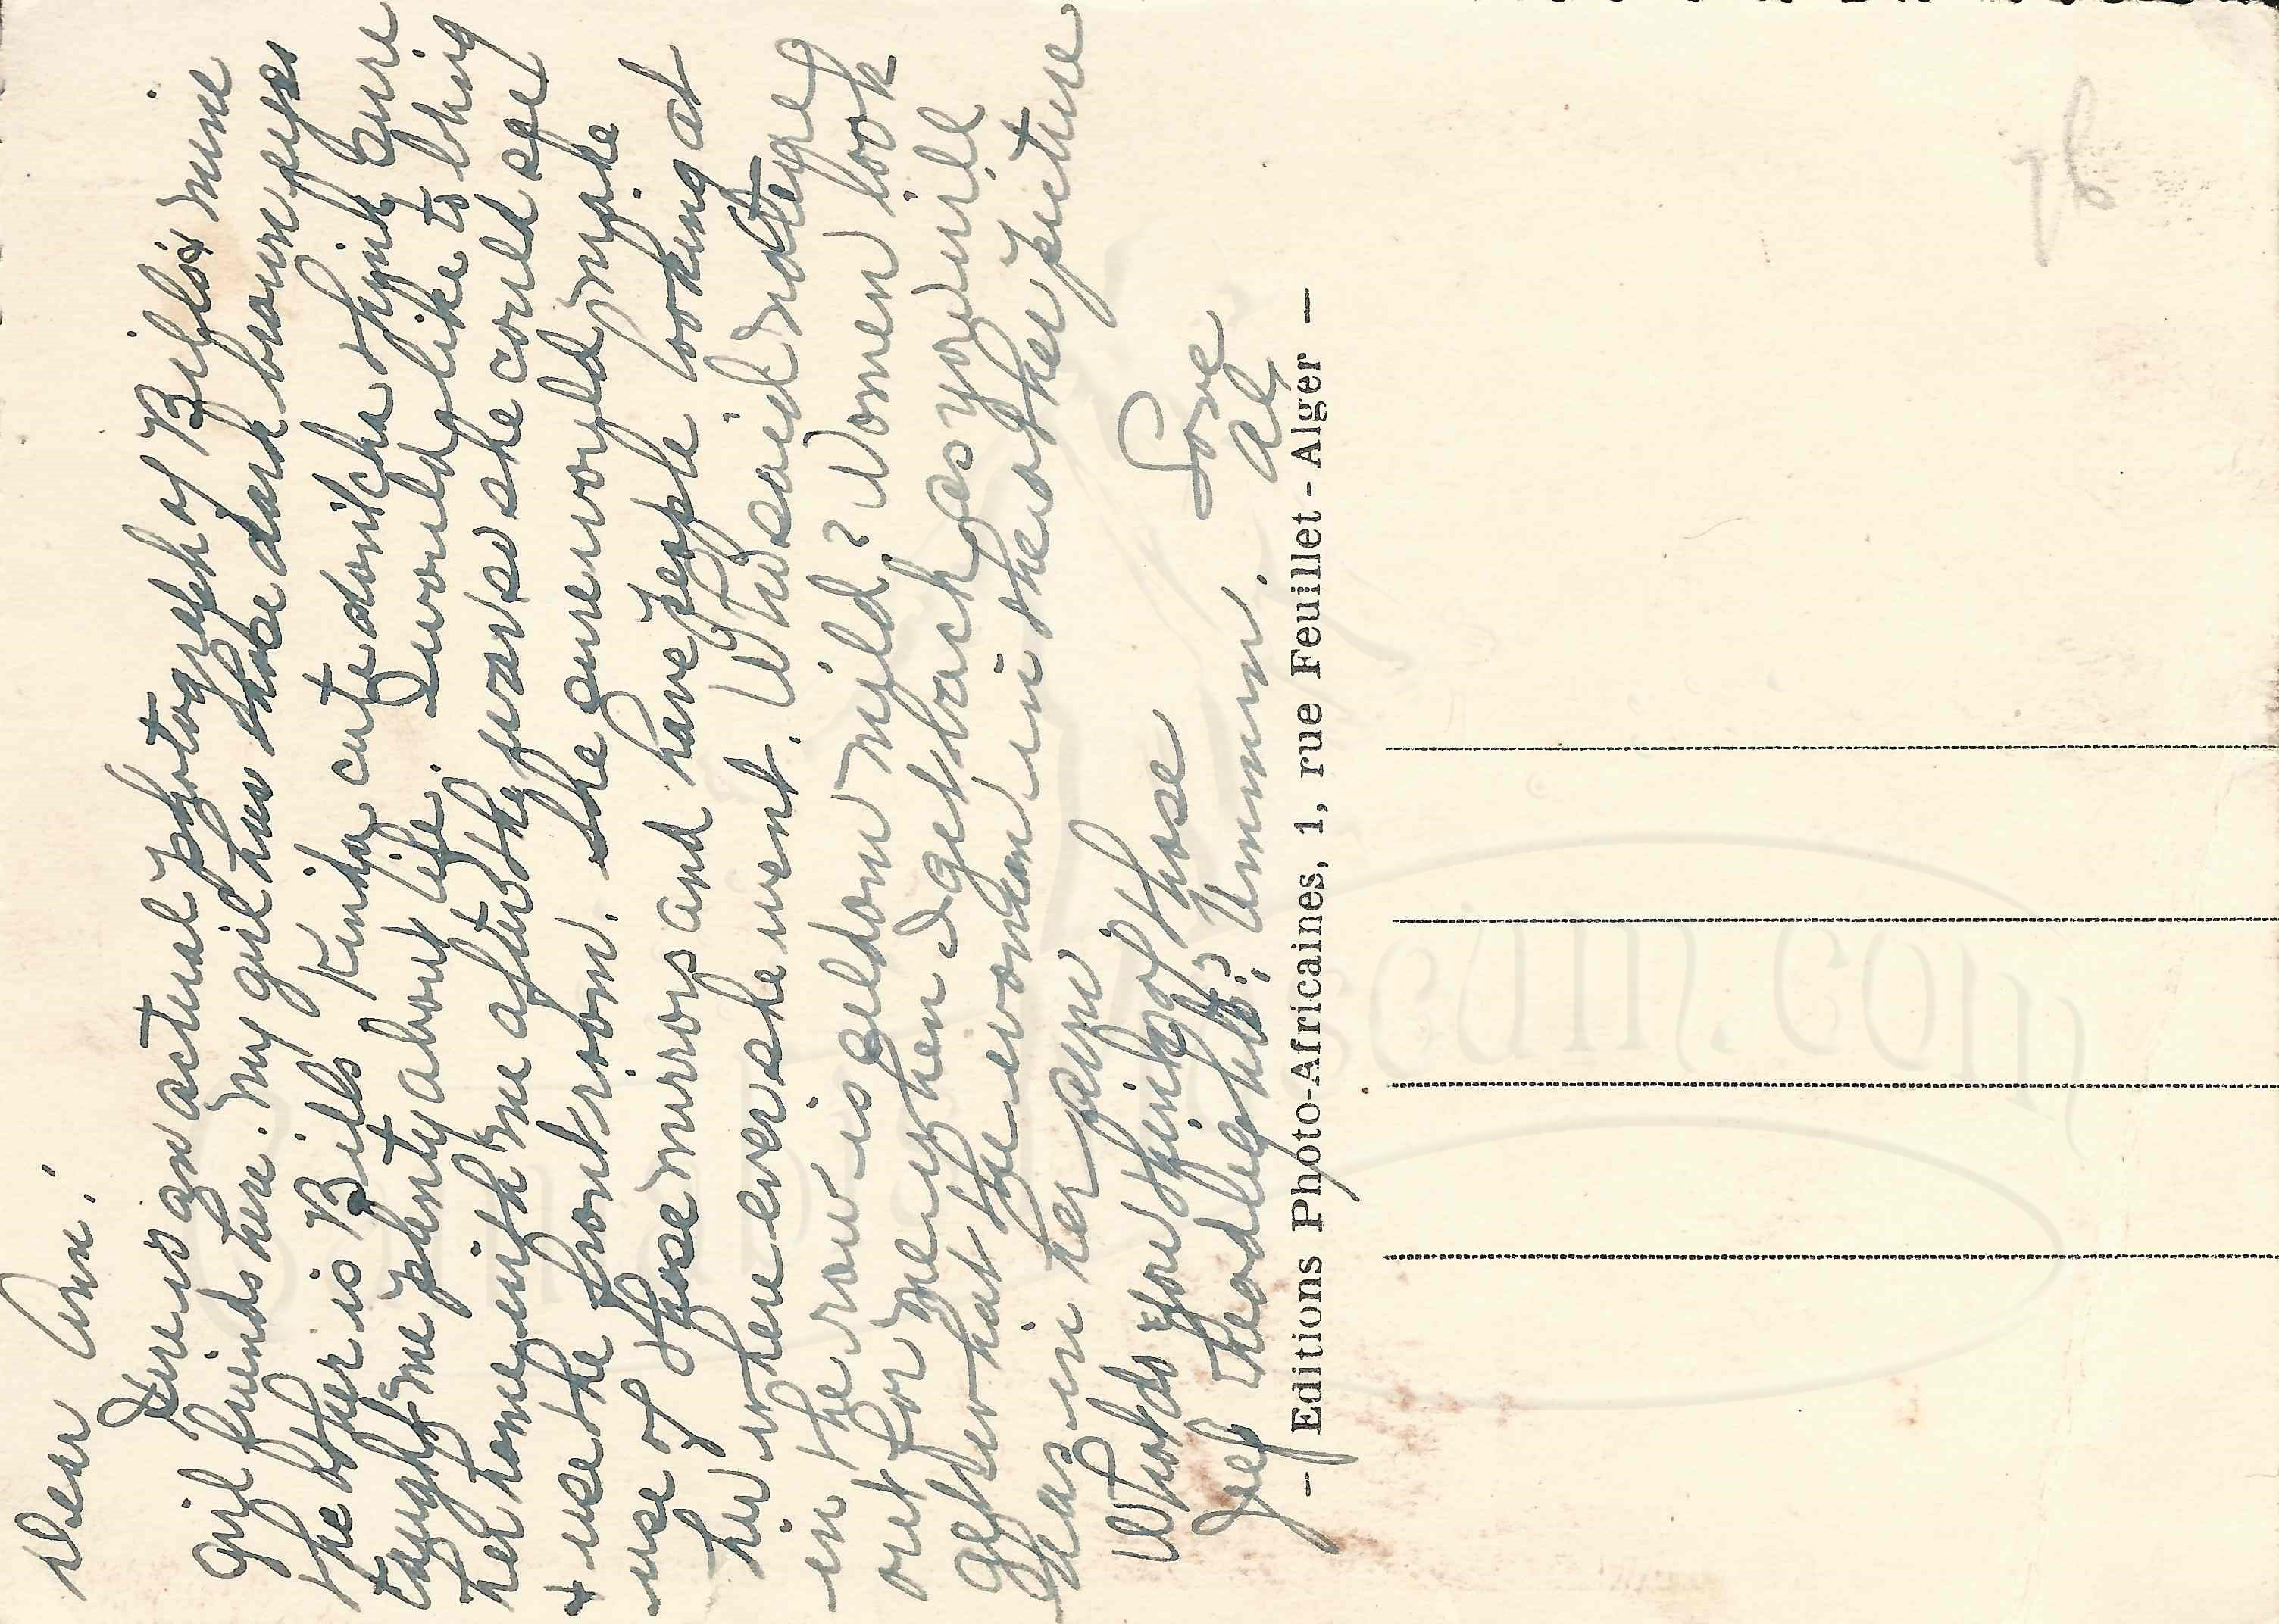 Dear Ann:
Here is an actual photograph of Bill's & mine
girl friends here. My girl has those dark brown eyes
the other is Bills Kinda cute don'tcha think Sure
taught me plenty about life. I would like to bring
her home with me after the war so she could spel
& use the front room. She sure would make
use of those mirrors and have people looking at
her where ever she went. Who said match
in the row is seldom wild? Women look
out for me when I get back as you will
get what the woman in the other picture
has in her
What do you think of those
Jeep headlights? Ummmm.
Love
Al
— Editions Photo-Africaines, 1, rue Feuillet - Alger —